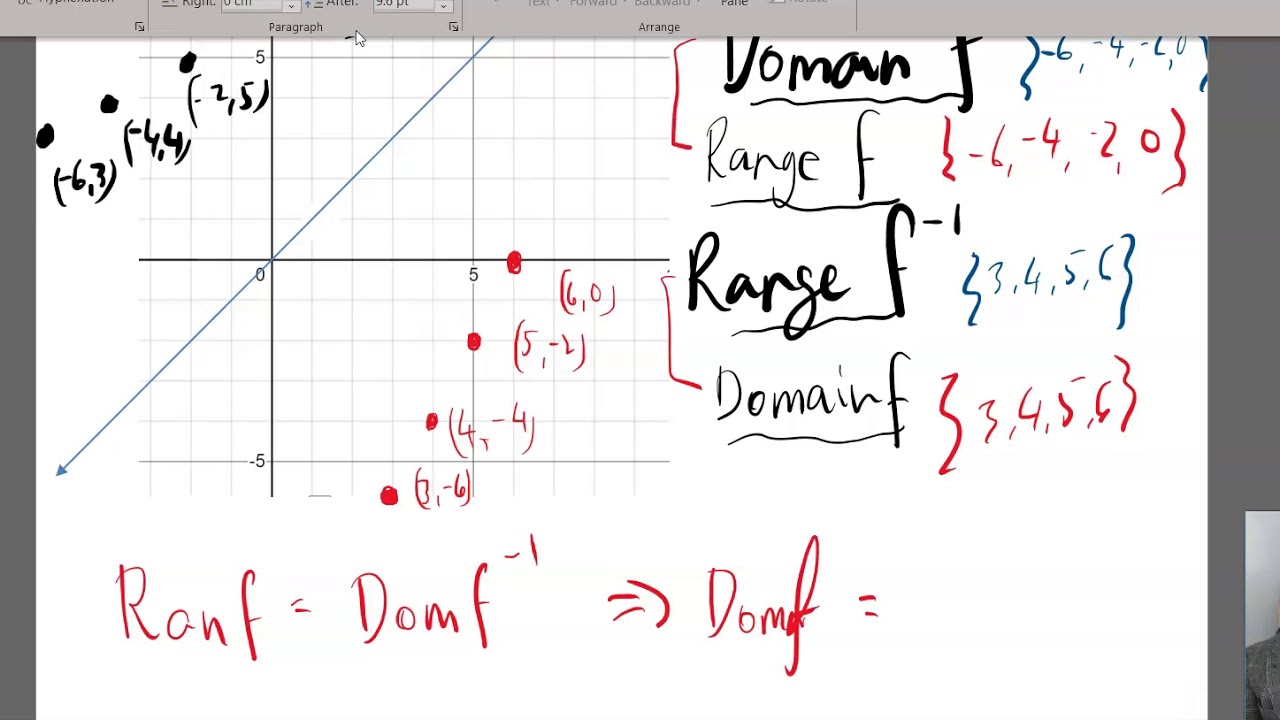 Right: 0 cm After: 9.6 pt Text Forward Backward Pane Rotate
Paragraph Arrange
5
(-2,5)
(-4,4)
(-6,3)
0 5
-5
(6,0)
(5,-2)
(4,-4)
(3,-6)
Domain f {-6, -4, -2, 0}
Range f {-6, -4, -2, 0}
Range f -1 {3,4,5,6}
Domain f {3,4,5,6}
Ran f = Dom f -1 ⇒ Dom f =